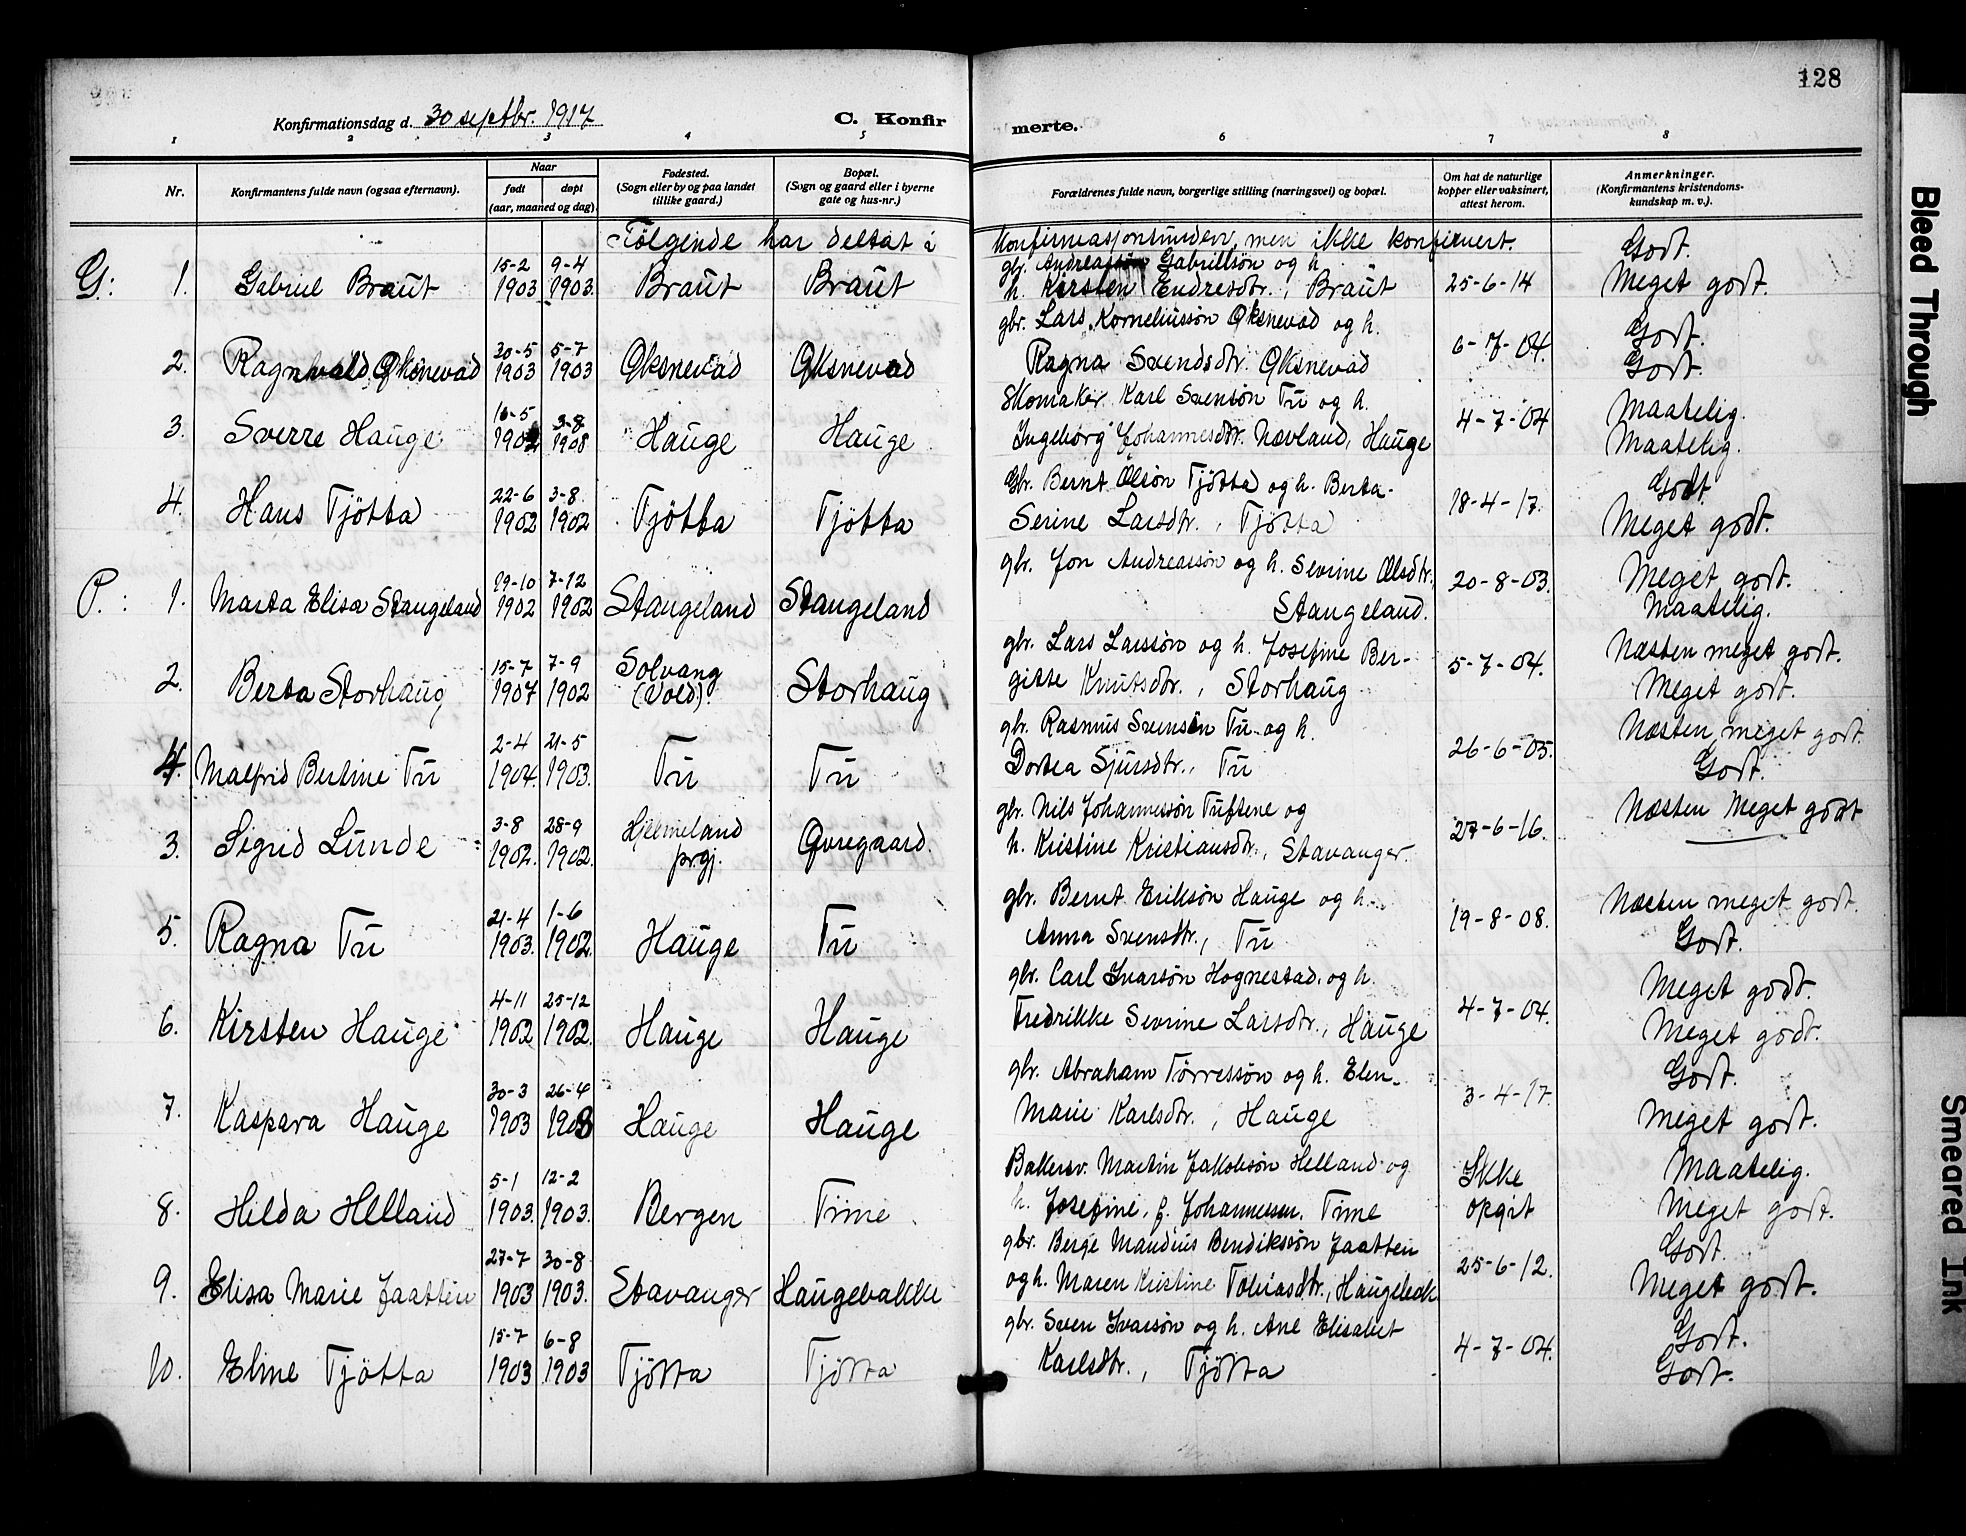 128
Konfirmationsdag d. 30 septbr. 1917
C. Konfirmerte.
1 2 3 4 5 6 7 8
Nr.
Konfirmantens fulde navn (ogsaa efternavn).
Naar
født
døpt
(aar, maaned og dag).
Fødested.
(Sogn eller by og paa landet
tillike gaard.)
Bopæl.
(Sogn og gaard eller i byerne
gate og hus-nr.)
Forældrenes fulde navn, borgerlige stilling (næringsvei) og bopæl.
Om hat de naturlige
kopper eller vaksinert,
attest herom.
Anmerkninger.
(Konfirmantens kristendoms-
kundskap m. v.).
Følgende har deltat i konfirmasjonsunderv. men ikke konfirmert.
G: 1. Gabriel Braut 15-2 1903 9-4 1903. Braut Braut
gbr. Gabrielsøn og h.
h. Kirsten Endresdtr., Braut 25-6-14
Godt.
Meget godt.
2. Ragnvald Øksnevad 30-5 1903 5-7 1903 Øksnevad Øksnevad
gbr. Lars Korneliussøn Øksnevad og h.
Ragna Svendsdtr. Øksnevad 6-7-04.
Godt.
Godt.
3. Sverre Hauge 16-5 3-8 Hauge Hauge
Skomaker Karl Svensøn Tu og h.
Ingeborg Johannesdtr. Nævland, Hauge 4-7-04
Maatelig.
Maatelig.
4. Hans Tjøtta 22-6 1902 3-8 1902 Tjøtta Tjøtta
Gbr. Bernt Olsøn Tjøtta og h. Berta-
Serine Larsdtr., Tjøtta 18-4-17.
Godt
Meget godt.
P.: 1. Marta Elisa Stangeland 19-10 1902 7-12 1902 Stangeland Stangeland
gbr. Jon Andreassøn og h. Sevrine Olsdtr,
Stangeland. 20-8-03.
Meget godt.
Maatelig.
2. Berta Storhaug 15-7 1907 7-9 1902 Solvang
(Vold). Storhaug
gbr. Lars Larssøn og h. Josefine Ber-
gitte Knutsdtr., Storhaug 5-7-04.
Næsten meget godt.
Meget godt.
4. Malfrid Bertine Tu 2-4 1904. 21-5 1903. Tu Tu
gbr. Rasmus Svensøn Tu og h.
Dortea Sjursdtr., Tu 26-6-05.
Næsten meget godt.
Godt.
3. Sigrid Lunde 3-8 1902. 28-9 1902. Hjelmeland
prgj. Øvregaard.
gbr. Nils Johannessøn Tuftene og
h. Kristine Kristiansdtr., Stavanger. 27-6-16.
Næsten Meget godt
5. Ragna Tu 21-4 1903. 1-6 1902. Hauge Tu
gbr. Bernt Eriksøn Hauge og h.
Anna Svensdtr., Tu 19-8-08.
Næsten meget godt.
Godt.
6. Kirsten Hauge 4-11 1902 25-12 1902. Hauge Hauge
gbr. Carl Ivarsøn Hognestad og h.
Fredrikke Sevrine Larsdtr., Hauge 4-7-04.
Meget godt.
Meget godt.
7. Kaspara Hauge 30-3 1903 26-4 1903 Hauge Hauge
gbr. Abraham Tørressøn og h. Elen-
Marie Karlsdtr., Hauge 3-4-17.
Godt.
Meget godt.
8. Hilda Helland 5-1 1903. 12-2 1903. Bergen Time
Martin Jakobsøn Helland og
h. Josefine, f. Johannessen. Time Ikke
opgit
Maatelig.
Meget godt.
9. Elisa Marie Jaatten 27-7 1903 30-8 1903. Stavanger Haugebakke
gbr. Berge Maudius Bendiksøn Jaatten
og h. Maren Kristine Tobiasdtr., Haugebak 25-6-12.
Godt.
Meget godt.
10. Eline Tjøtta 15-7 1903 6-8 1903 Tjøtta Tjøtta
gbr. Sven Ivarsøn og h. Ane Elisabet
Karlsdtr., Tjøtta 4-7-04.
Godt.
Godt.
Bleed Through
Smeared Ink